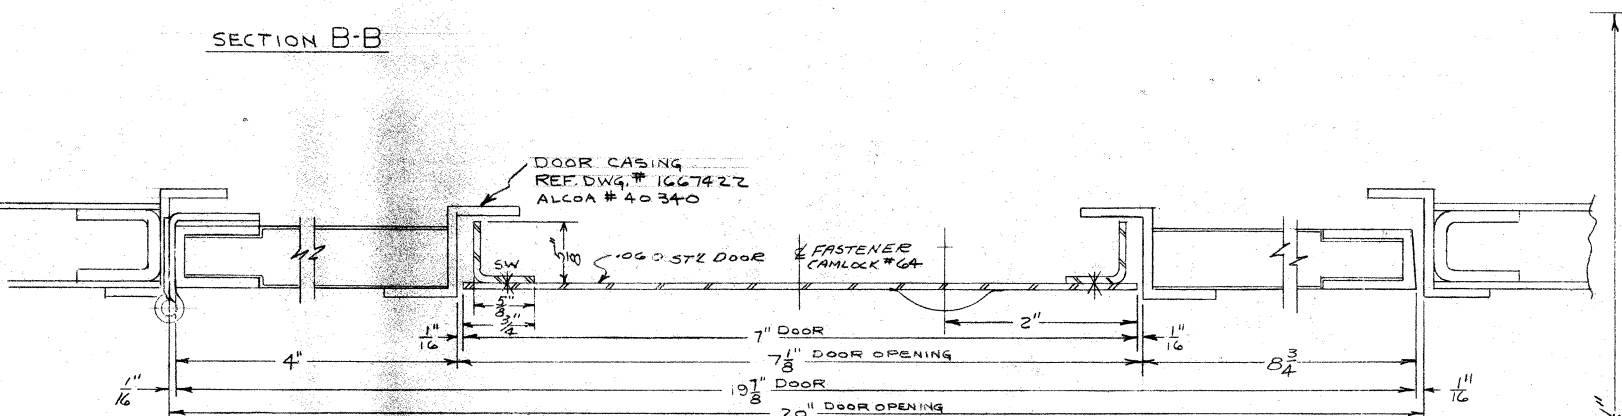 SECTION B-B
DOOR CASING
REF. DWG. # 1667422
ALCOA # 40340
5/8"
SW
.060 STL DOOR
℄ FASTENER
CAMLOCK #64
5/8"
3/4"
2"
1/16"
7" DOOR
1/16"
4"
7 1/8" DOOR OPENING
8 3/4
1/16"
19 7/8" DOOR
1/16"
20" DOOR OPENING